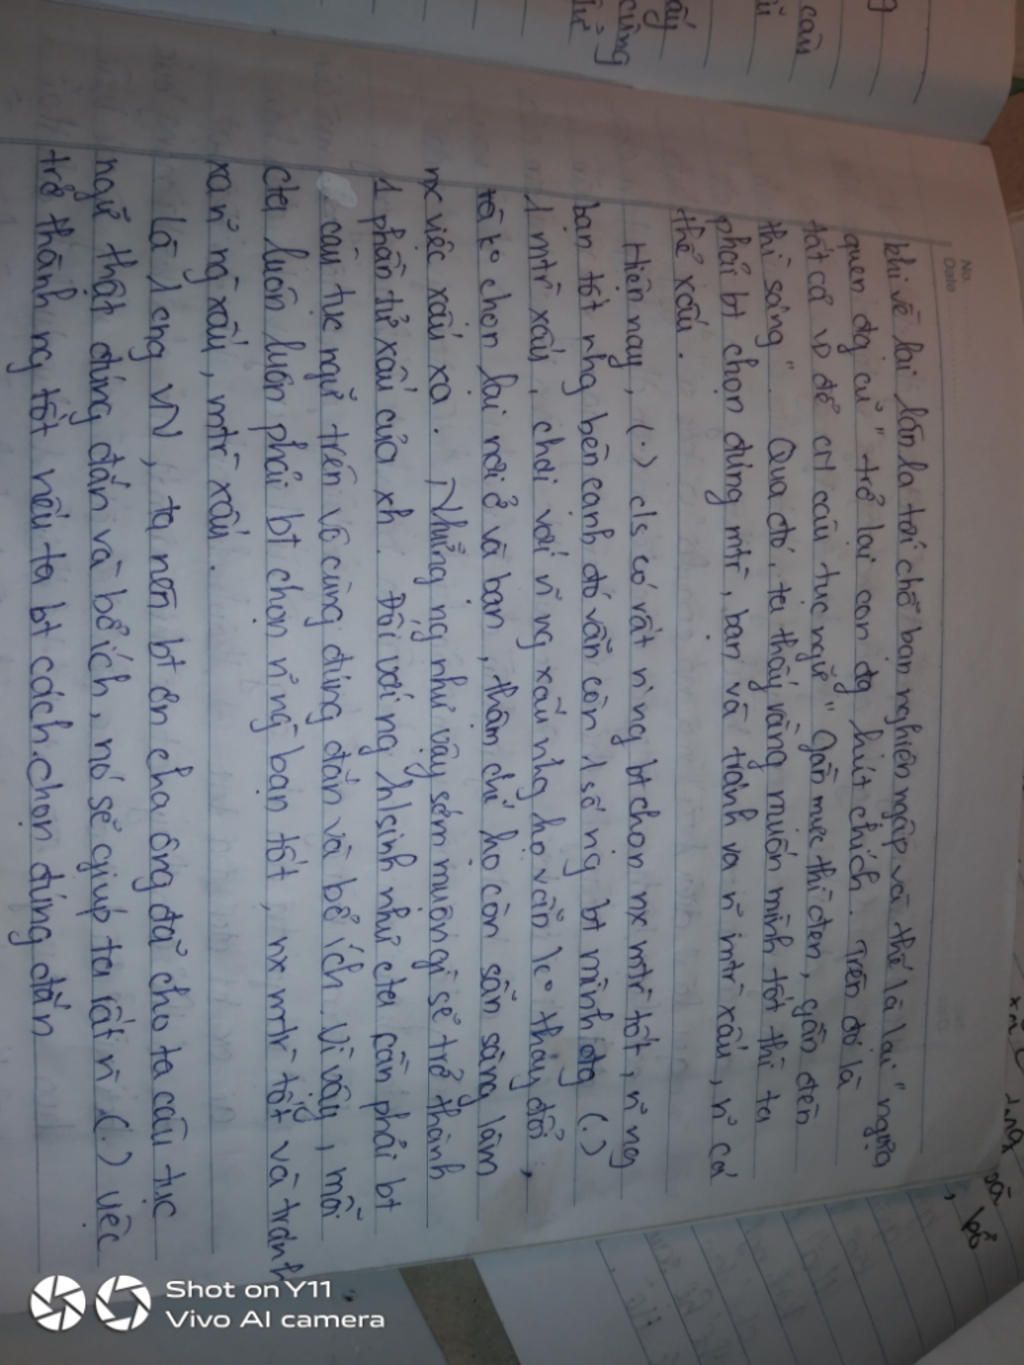 khi về lại lân la tới chỗ bạn nghiện ngập và thế là lại "ngựa
quen đg cũ" trở lại con đg hút chích. Trên đó là
tất cả VD để CM câu tục ngữ "gần mực thì đen, gần đèn
thì sáng". Qua đó, ta thấy rằng muốn mình tốt thì ta
phải bt chọn đúng mtr, bạn và tránh xa n~ mtr xấu, n~ cá
thể xấu.
Hiện nay, (.) c/s có rất n` ng bt chọn nx mtr tốt, n~ ng
bạn tốt nhg bên cạnh đó vẫn còn 1 số ng bt mình đg (.)
1 mtr xấu, chơi với n~ ng xấu nhg họ vẫn ko thay đổi,
ko chọn lại nơi ở và bạn, thậm chí họ còn sẵn sàng làm
nx việc xấu xa. Những ng như vậy sớm muộn gì sẽ trở thành
1 phần tử xấu của xh. Đối với ng h/sinh như cta cần phải bt
câu tục ngữ trên vô cùng đúng đắn và bổ ích. Vì vậy, mỗi
cta luôn luôn phải bt chọn n~ ng bạn tốt, nx mtr tốt và tránh
xa n~ ng xấu, mtr xấu.
Là 1 cng VN, ta nên bt ơn cha ông đã cho ta câu tục
ngữ thật đúng đắn và bổ ích, nó sẽ giúp ta rất n` (.) việc
trở thành ng tốt nếu ta bt cách chọn đúng đắn
Shot on Y11
Vivo AI camera